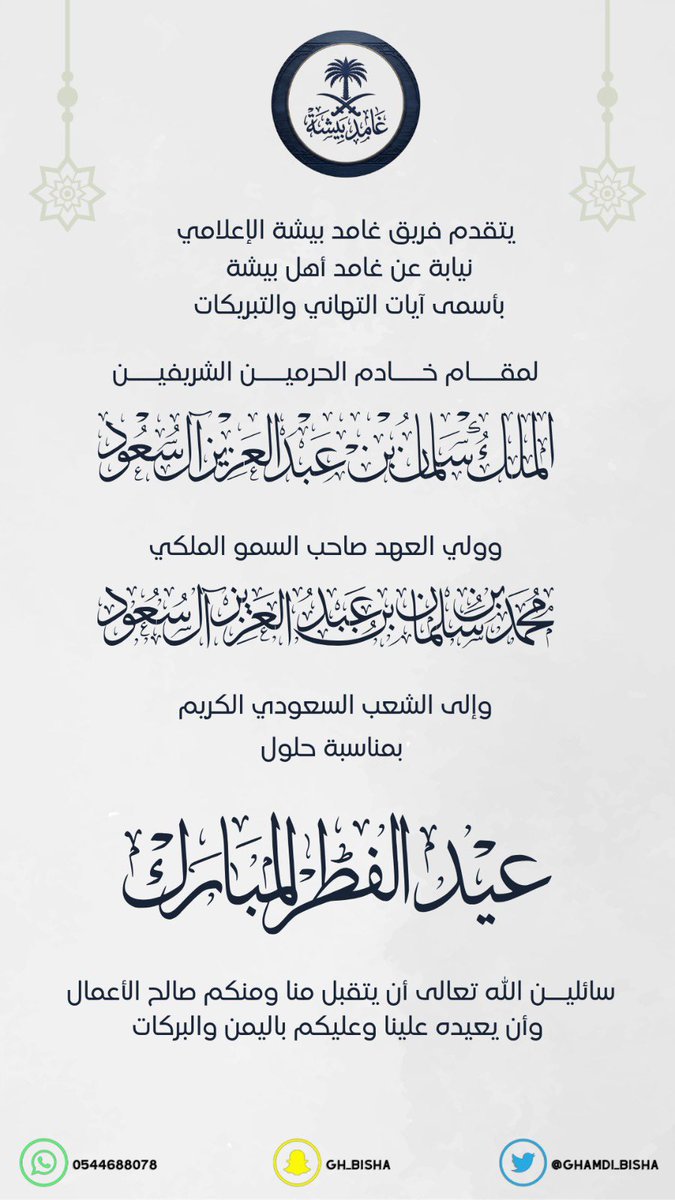 غامد بيشة
يتقدم فريق غامد بيشة الإعلامي
نيابة عن غامد أهل بيشة
بأسمى آيات التهاني والتبريكات
لمقـــام خـــادم الحرميـــن الشريفيـــن
الملك سلمان بن عبدالعزيز آل سعود
وولي العهد صاحب السمو الملكي
محمد بن سلمان بن عبدالعزيز آل سعود
وإلى الشعب السعودي الكريم
بمناسبة حلول
عيد الفطر المبارك
سائليـــن الله تعالى أن يتقبل منا ومنكم صالح الأعمال
وأن يعيده علينا وعليكم باليمن والبركات
0544688078 GH_BISHA @GHAMDI_BISHA